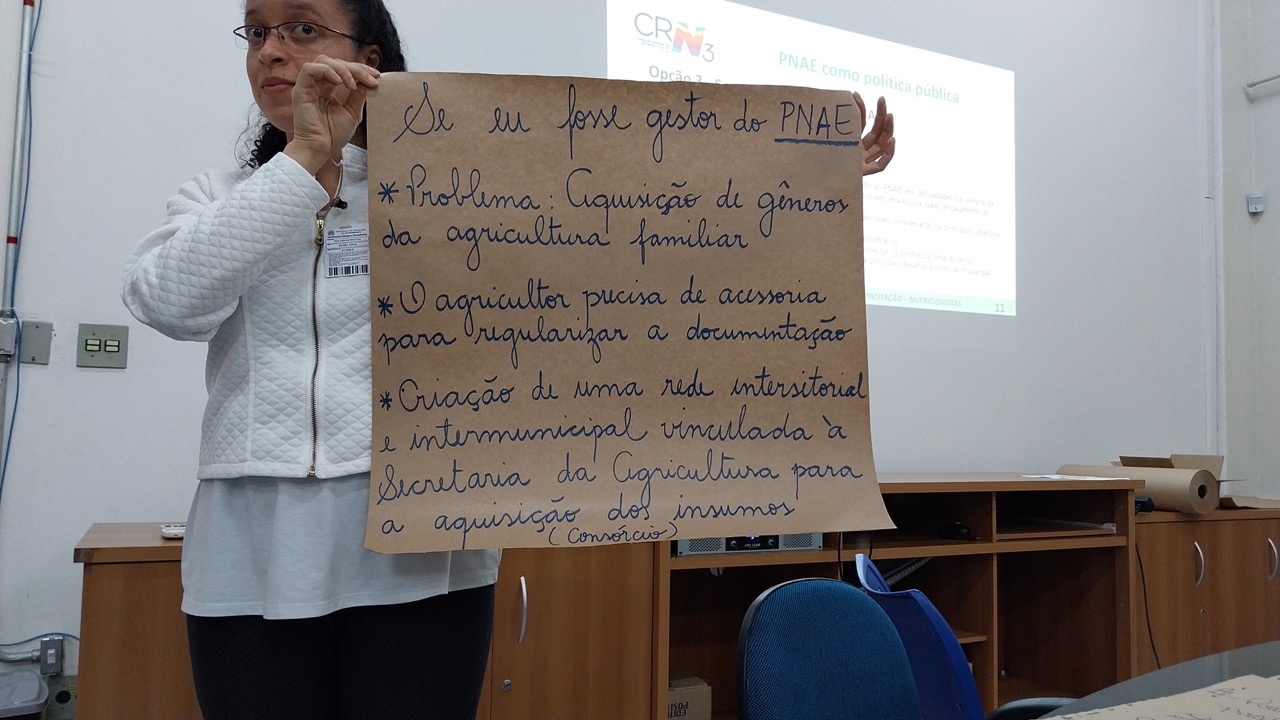 CRN3
PNAE como política pública
Opção 3
Se eu fosse gestor do PNAE
* Problema: Aquisição de gêneros
da agricultura familiar
* O agricultor precisa de acessoria
para regularizar a documentação
* Criação de uma rede intersitorial
e intermunicipal vinculada à
Secretaria da Agricultura para
a aquisição dos insumos
(Consórcio)
CAPACITAÇÃO - NUTRICIONISTAS
11